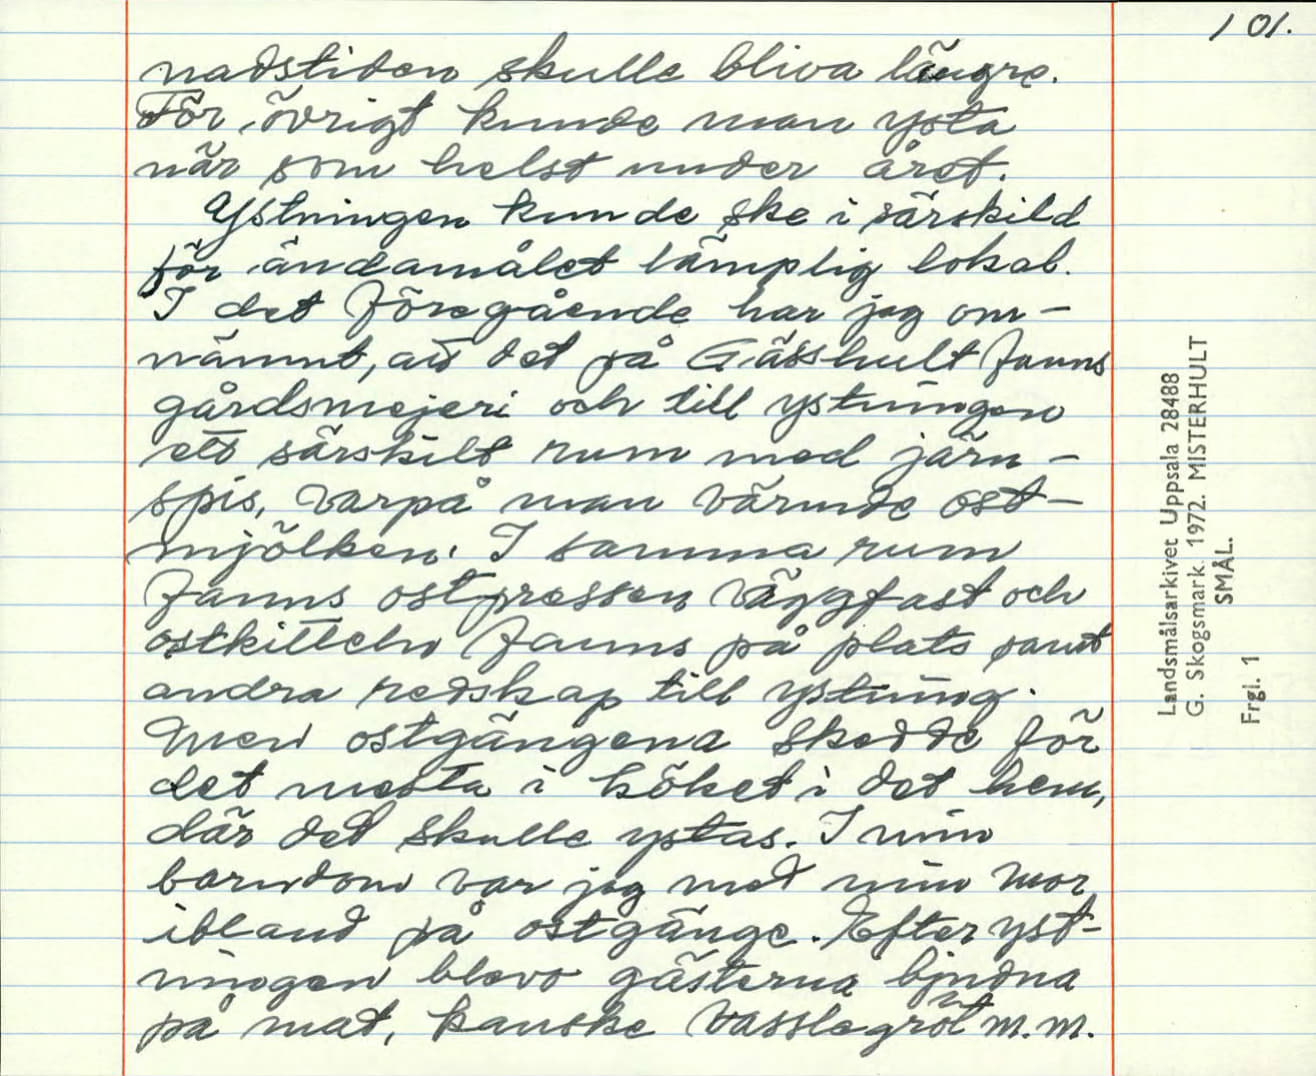 101.
nadstiden skulle bliva längre.
För övrigt kunde man ysta
när som helst under året.
Ystningen kunde ske i särskild
för ändamålet lämplig lokal.
I det föregående har jag om-
nämnt, att det på Gässhult fanns
gårdsmejeri och till ystningen
ett särskilt rum med järn-
spis, varpå man värmde ost-
mjölken. I samma rum
fanns ostpressen väggfast och
ostkitteln fanns på plats samt
andra redskap till ystning.
Men ostgängena skedde för
det mesta i köket i det hem,
där det skulle ystas. I min
barndom var jag med min mor
ibland på ostgänge. Efter yst-
ningen blevo gästerna bjudna
på mat, kanske vasslegröt m.m.
Landsmålsarkivet Uppsala 28488
G. Skogsmark. 1972. MISTERHULT
SMÅL.
Frgl. 1